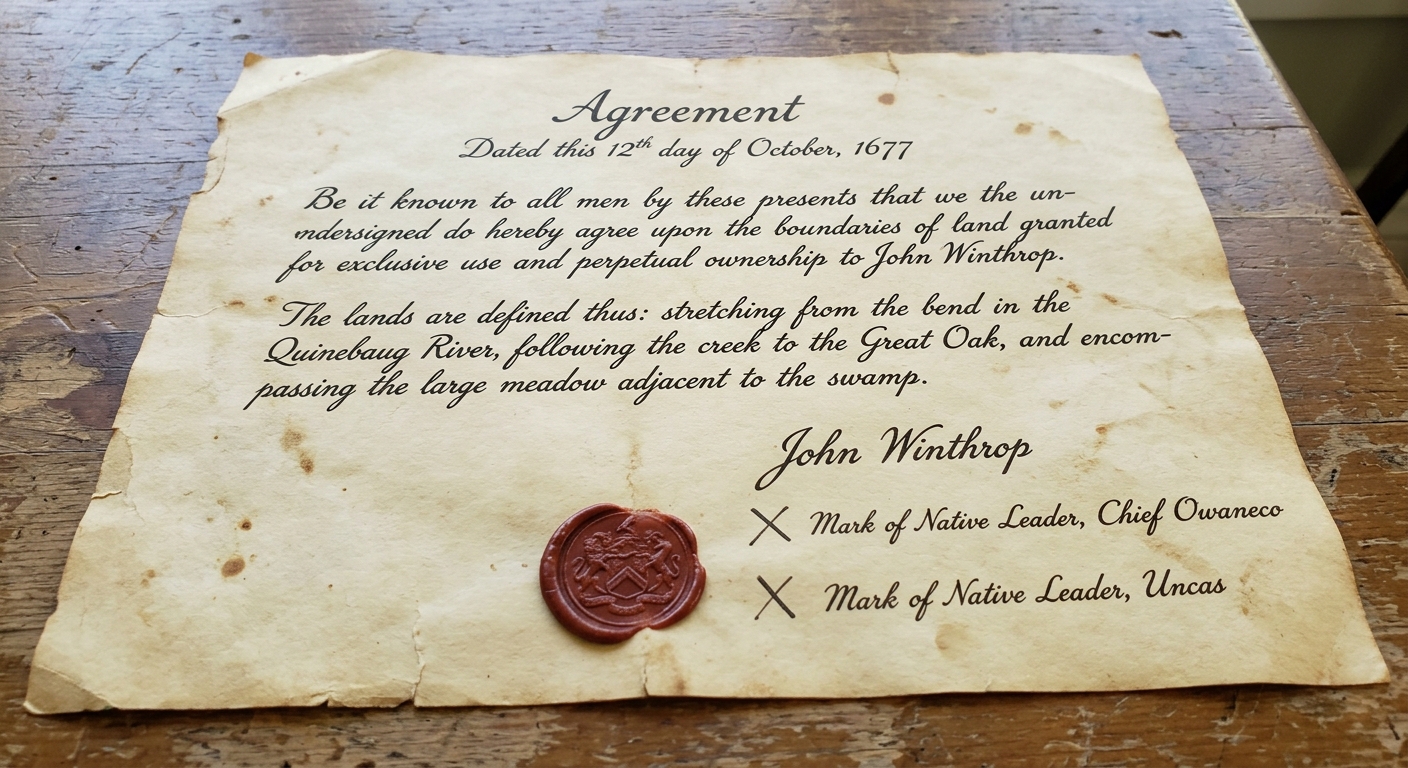 Agreement
Dated this 12th day of October, 1677
Be it known to all men by these presents that we the un-
ndersigned do hereby agree upon the boundaries of land granted
for exclusive use and perpetual ownership to John Winthrop.
The lands are defined thus: stretching from the bend in the
Quinebaug River, following the creek to the Great Oak, and encom-
passing the large meadow adjacent to the swamp.
John Winthrop
X Mark of Native Leader, Chief Owaneco
X Mark of Native Leader, Uncas